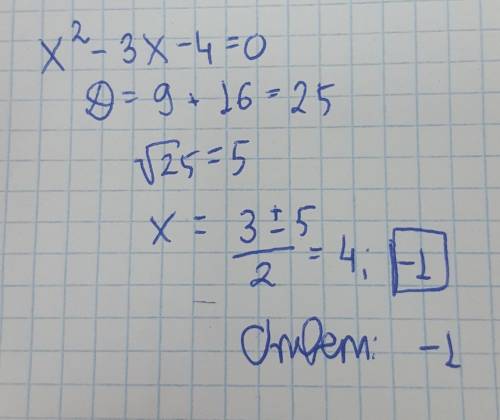 x² - 3x - 4 = 0
D = 9 + 16 = 25
√25 = 5
x = (3 ± 5)/2 = 4; -1
Ответ: -1